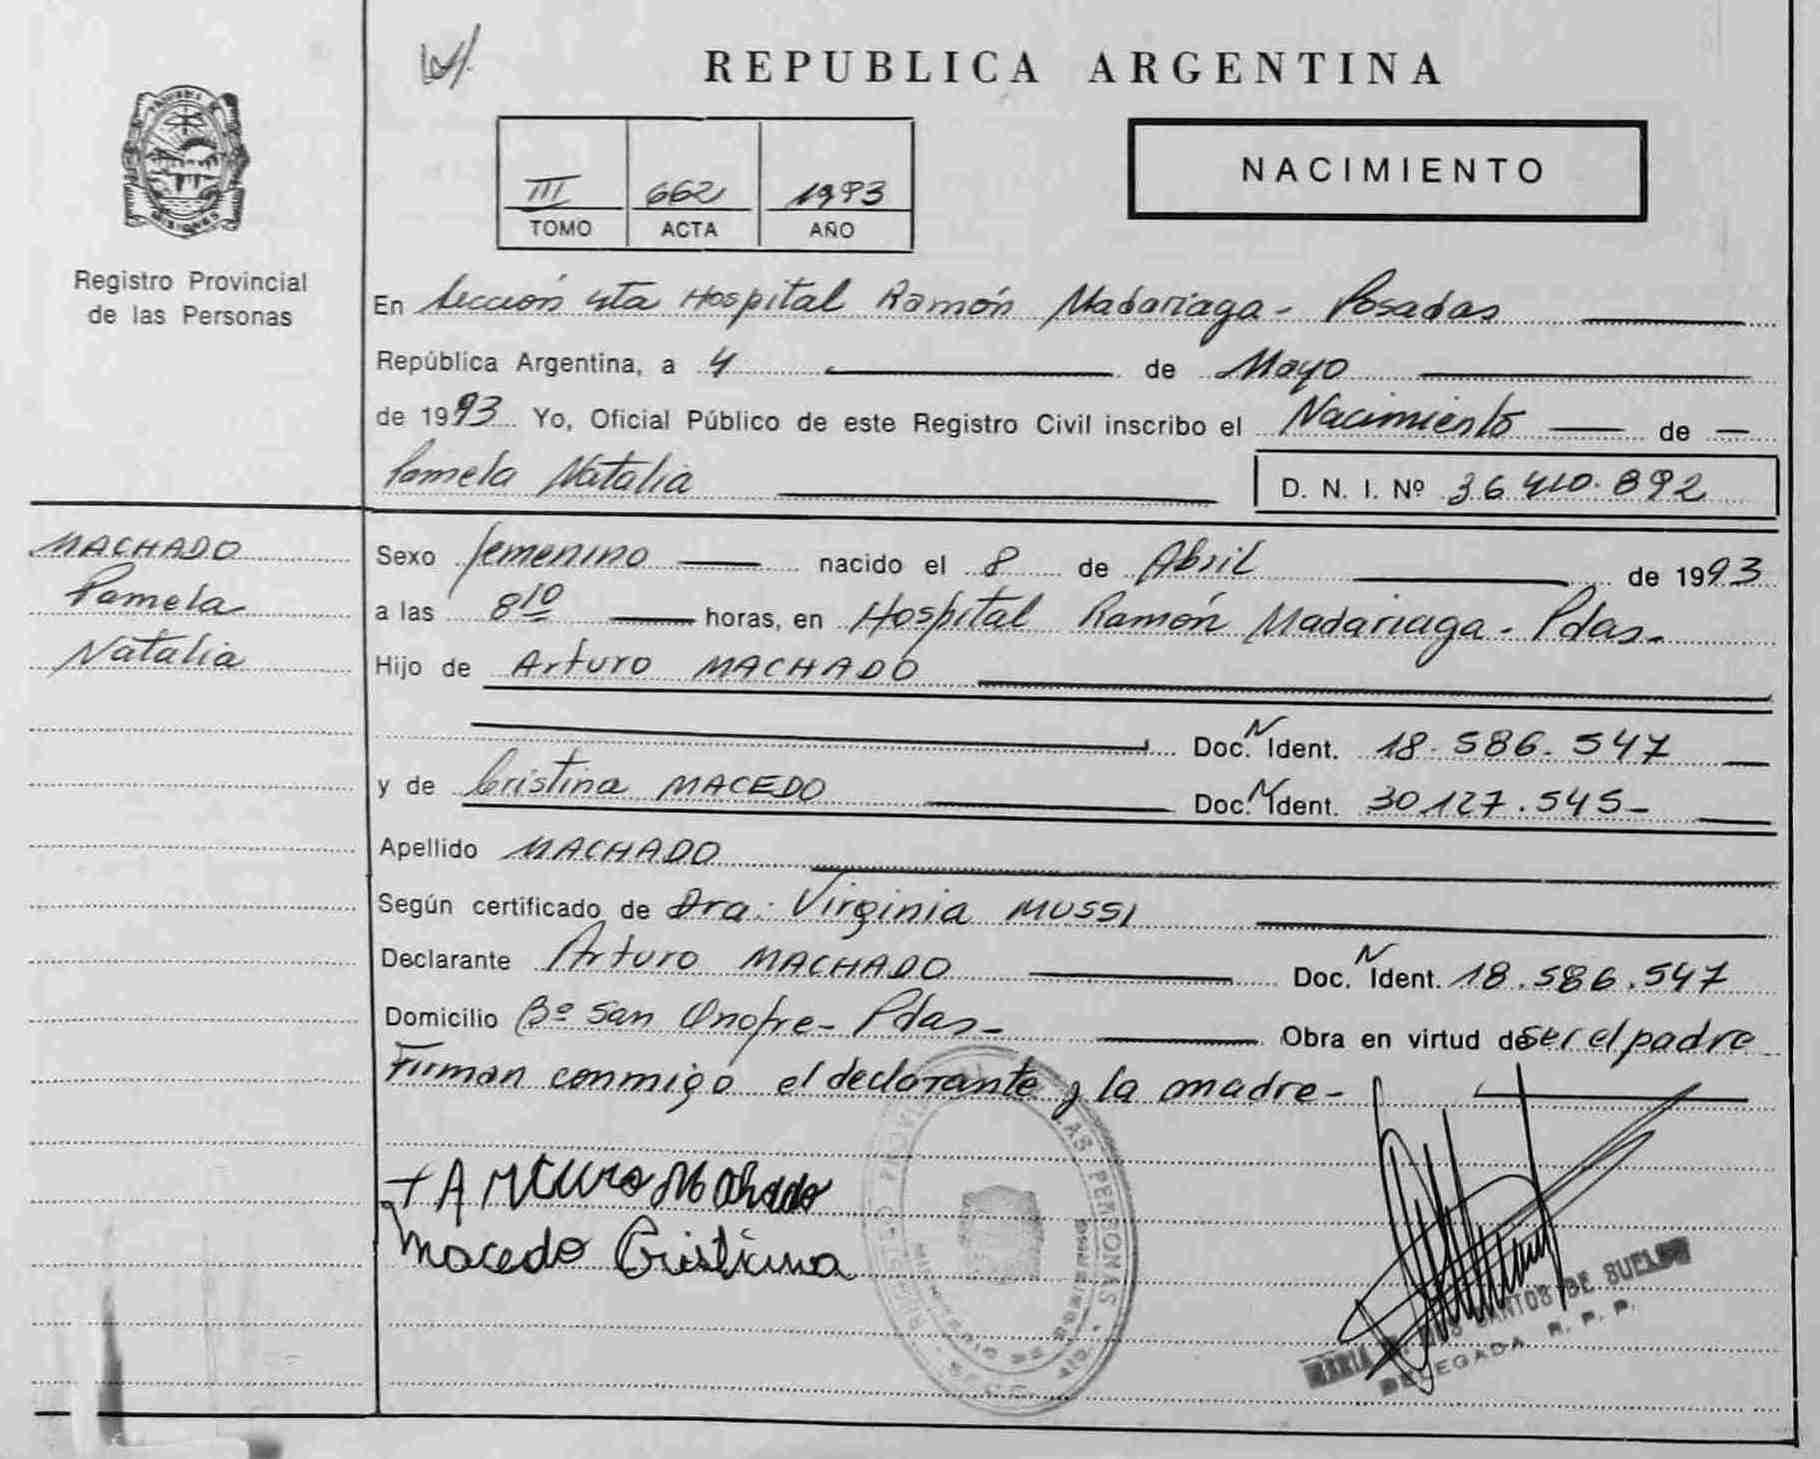 REPUBLICA ARGENTINA
NACIMIENTO
III 662 1993
TOMO ACTA AÑO
Registro Provincial
de las Personas
En Sección 4ta Hospital Ramón Madariaga - Posadas
República Argentina, a 4 de Mayo
de 1993 Yo, Oficial Público de este Registro Civil inscribo el Nacimiento de
Pamela Natalia D. N. I. Nº 36.410.892
MACHADO
Pamela
Natalia
Sexo femenino nacido el 8 de Abril de 1993
a las 8 10 horas, en Hospital Ramón Madariaga - Pdas -
Hijo de Arturo MACHADO
Doc. N Ident. 18.586.547
y de Cristina MACEDO Doc. N Ident. 30127.545 -
Apellido MACHADO
Según certificado de Dra. Virginia MUSSI
Declarante Arturo MACHADO Doc. N Ident. 18.586.547
Domicilio Bº San Onofre - Pdas - Obra en virtud de ser el padre
Firman conmigo el declarante y la madre -
+ Arturo Machado
Macedo Cristina
SANTOS DE
DELEGADA R. P. P.